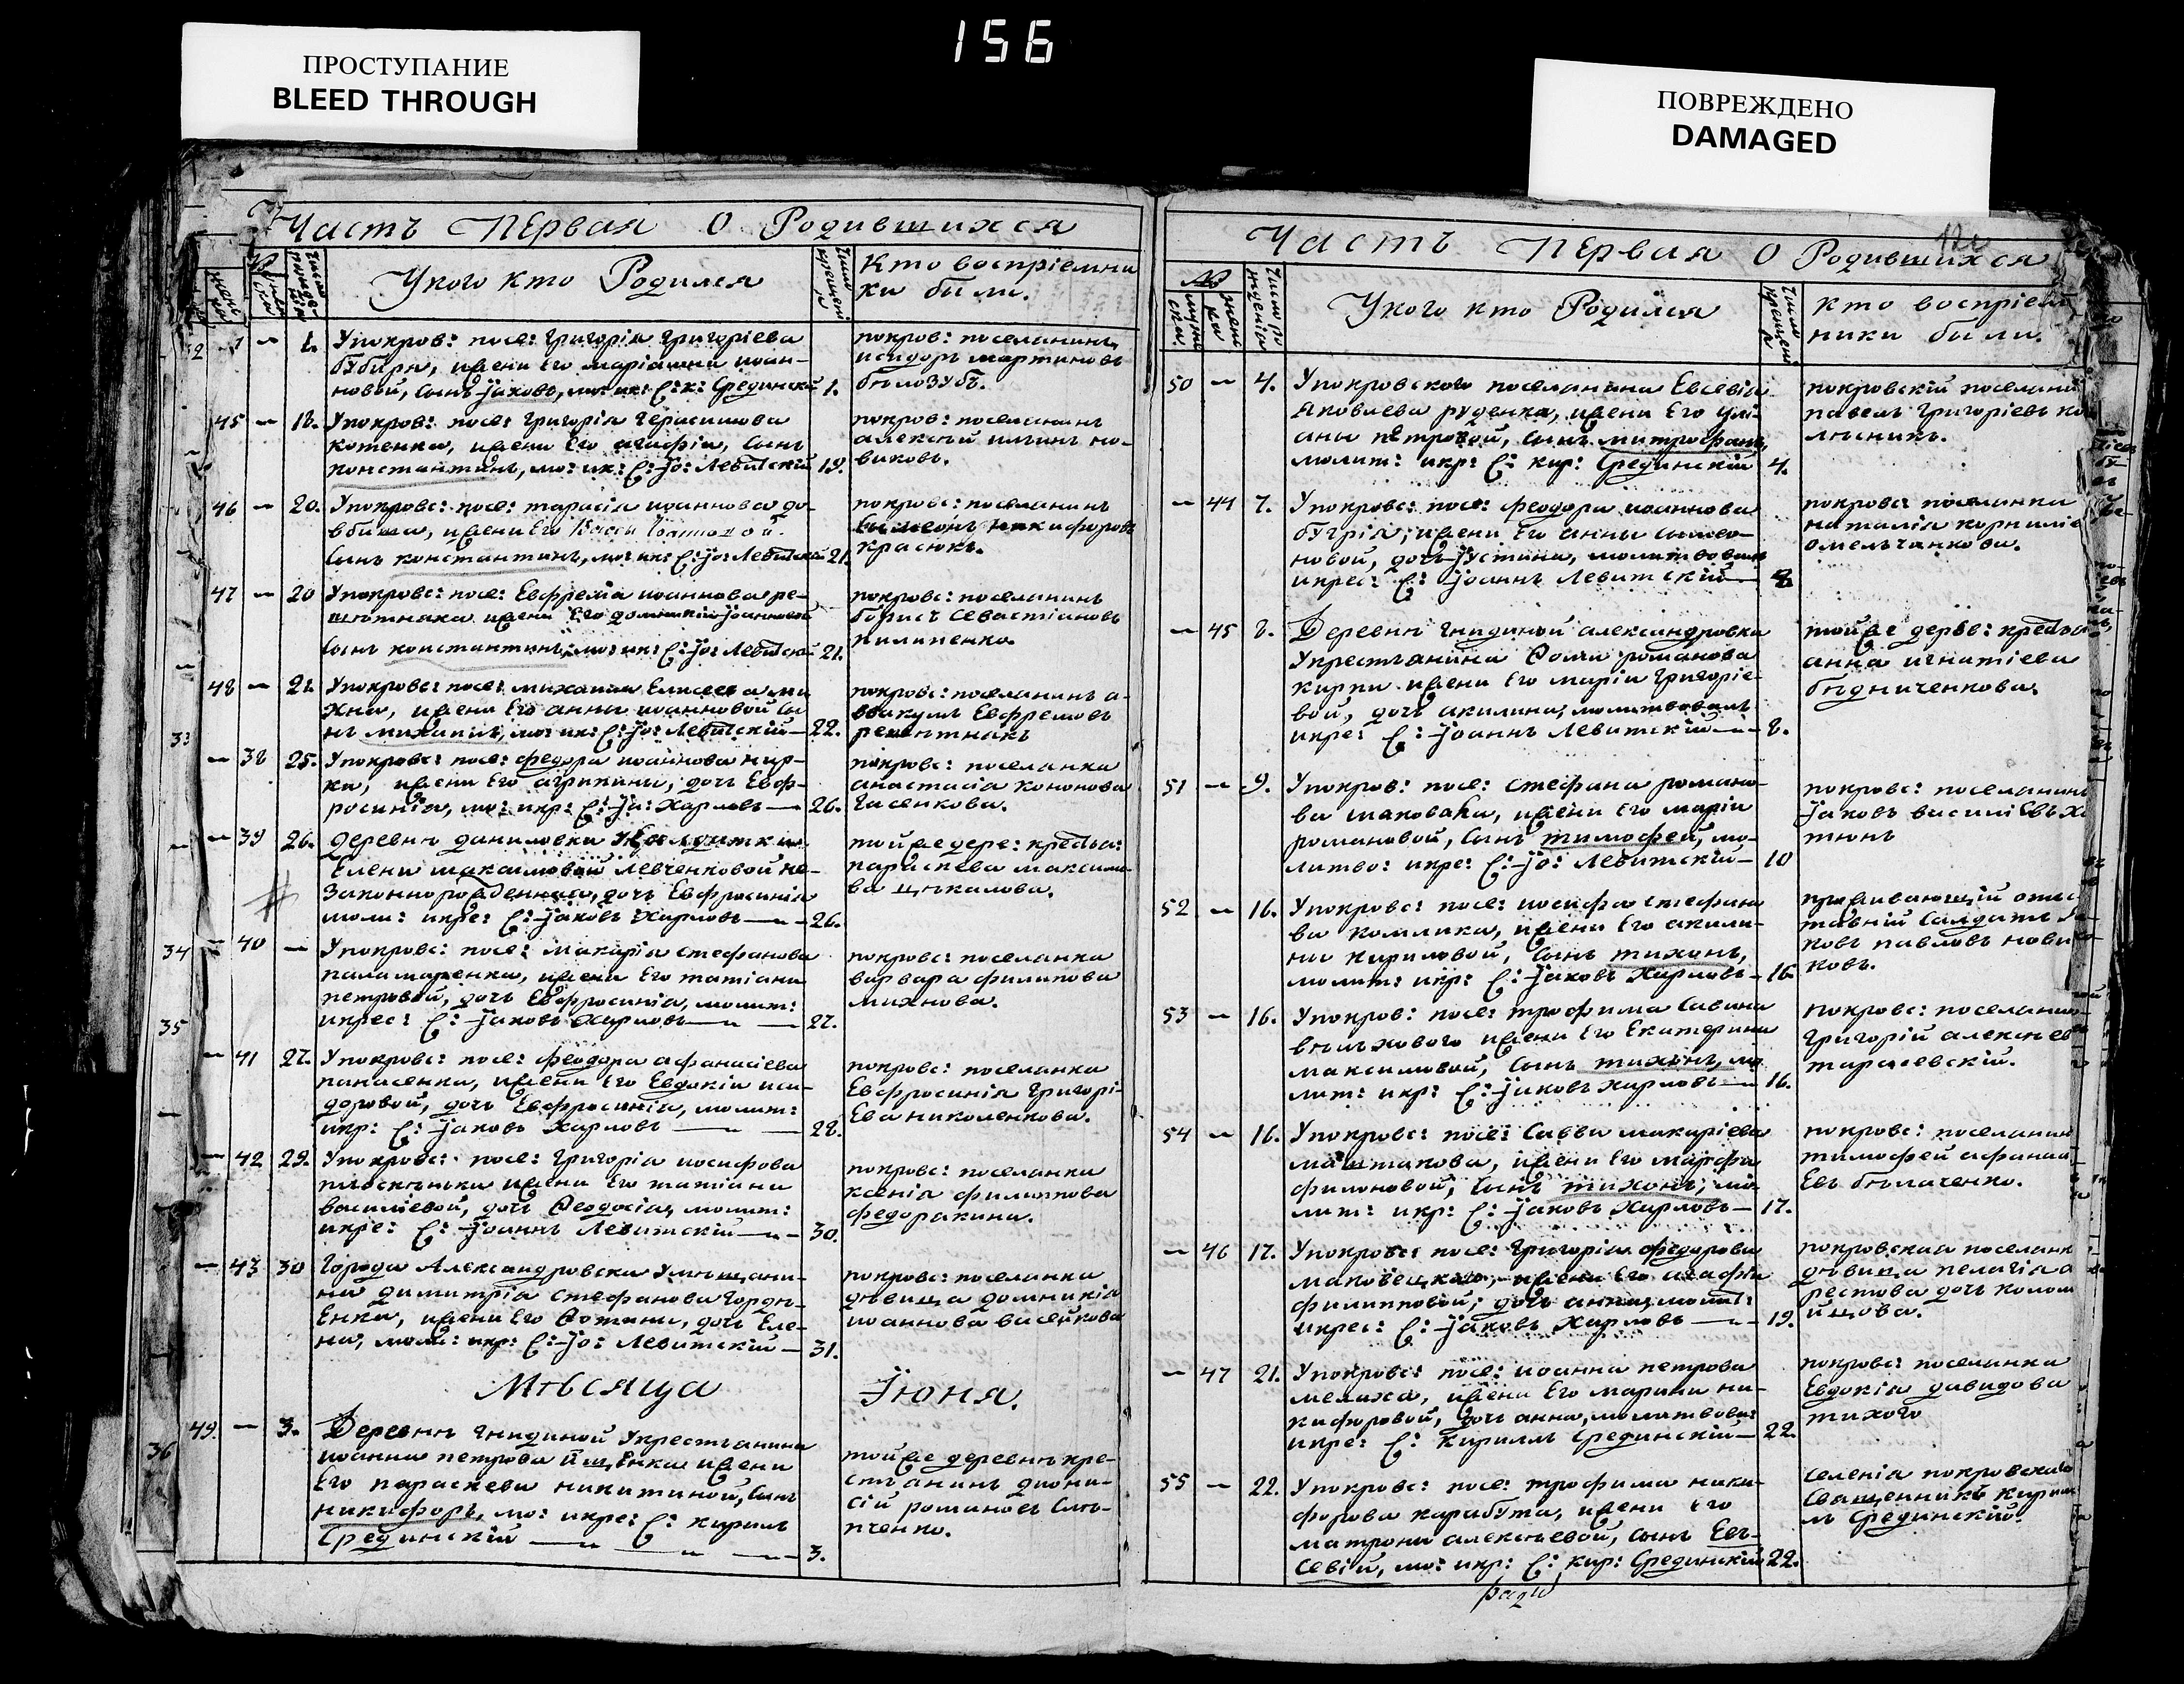 156
ПРОСТУПАНИЕ
BLEED THROUGH
ПОВРЕЖДЕНО
DAMAGED
Часть Первая О Родившихся
У кого кто Родился
Кто воспріемни
ки были.
1. У покров: посе: григорія григоріева
бубыря, и жены его маріанны иоан-
новой, сынъ Іаковъ, мо: и к: С: к: Срединскій 1.
покров: поселянинъ
исидоръ мартиновъ
белозубъ.
45 — 18. У покров: посе: григорія герасимова
котенка, и жены его агафіи, сынъ
константинъ, мо: и к: С: Іо: Левитскій 19.
покров: поселянинъ
алексей ильинъ но-
виковъ.
46 — 20. У покровс: посе: тарасія иоаннова до-
вбиша, и жены его
сынъ константинъ, мо: и к: С: Іо: Левитскій 21.
покровс: поселянинъ
никифоровъ
красюкъ.
47 — 20 У покровс: посе: Евфрема иоаннова ре-
шетняка и жены его домникіи Іоанновой
сынъ константинъ, мо: и к: С: Іо: Левитскій 21.
покровс: поселянинъ
борисъ Севастіановъ
пилипенко.
48 — 21. У покровс: посе: михаила Елисеева ми
хна, и жены его анны иоанновой сы
нъ михаилъ, мо: и к: С: Іо: Левитскій — 22.
покровс: поселянинъ а-
ввакумъ Евфремовъ
решетнякъ
— 38 25. У покровс: посе: федора иоаннова кир-
ки, и жены его агрипины, дочь Евф-
росинія, мо: и кр: С: Іа: Харловъ — 26.
покровс: поселянка
анастасія кононова
гасенкова.
— 39 26. деревни даниловки
Елены максимовой левченковой не-
законнорожденная, дочь Евфросинія
моли: и кре: С: Іаковъ Харловъ — 26.
той же дере: крестья:
параскева максимо-
ва цукалова.
— 40 — У покровс: посе: макарія стефанова
паламаренка, и жены его татіаны
петровой, дочь Евфросинія, молит:
и крес: С: Іаковъ Харловъ — 27.
покровс: поселянка
варвара филипова
михнова.
— 41 27. У покровс: посе: феодора афанасіева
панасенка, и жены его Евдокіи иси-
доровой, дочь Евфросинія, молит:
и кр: С: Іаковъ Харловъ — 28.
покровс: поселянка
Евфросинія григорі-
Ева николенкова.
— 42 29. У покровс: посе: григорія иосифова
плоскуньки и жены его татіаны
василіевой, дочь Феодосія, молит:
и кре: С: Іоаннъ Левитскій — 30.
покровс: поселянка
ксенія филиппова
федоракина.
— 43 30 Города Александровска у мещани-
на димитрія стефанова гордѣ-
Енка, и жены его Фотины, дочь Еле-
на, моли: и кр: С: Іо: Левитскій — 31.
покровс: поселянка
девица домникія
иоаннова васейкова
Мѣсяца Іюня.
49. — 3. Деревни гнидиной у крестьянина
иоанна петрова ищенка и жены
Его параскевы никитиной, сынъ
никифоръ, мо: и кре: С: кирилъ
Срединскій — 3.
той же деревни кре-
стьянинъ діони-
сій романовъ слю-
пченко.
Часть Первая О Родившихся
У кого кто Родился
Кто воспріем
ники были.
50 — 4. У покровского поселянина Евсевія
Яковлева руденка, и жены его улі-
аны петровой, сынъ митрофанъ,
молит: и кр: С: кир: Срединскій 4.
покровскій поселяни
павелъ григоріевъ ко
лесникъ.
— 44 7. У покровс: посе: феодора иоаннова
бугрія, и жены его анны симео-
новой, дочь Іустина, молитвовалъ
и крес: С: Іоаннъ Левитскій — 8
покровс: поселянка
наталія корниліе
омельчанкова.
— 45 8. Деревни гнидиной александровки
у крестьянина Фомы романова
кирпы и жены его маріи григоріе-
вой, дочь акилина, молитвовалъ
и кре: С: Іоаннъ Левитскій — 8.
той же дерев: крестья
анна игнатіева
бедниченкова.
51 — 9. У покров: посе: стефана романо-
ва маковака, и жены его маріи
романовой, сынъ тимофей, мо-
литво: и кре: С: Іо: Левитскій — 10
покровс: поселянинъ
Іаковъ василіевъ хо
тюнъ
52 — 16. У покровс: посе: иосифа стефано
ва комлика, и жены его акили-
ны кириловой, сынъ тихонъ,
молит: и кр: С: Іаковъ Харловъ — 16.
проживающій отс
тавній салдатъ Іа
ковъ павловъ нови
ковъ.
53 — 16. У покров: посе: трофима савина
вельхового и жены его Екатерины
максимовой, сынъ тихонъ, мо
лит: и кр: С: Іаковъ Харловъ — 16.
покровс: поселянин
григорій алексеев
тарасевскій.
54 — 16. У покровс: посе: Саввы макаріева
маштакова, и жены его марфы
филоновой, сынъ тихонъ, мо-
лит: и кр: С: Іаковъ Харловъ — 17.
покровс: поселянин
тимофей афанаси
Евъ белаченко.
— 46 17. У покровс: посе: григорія федорова
маковецкаго, и жены его агафіи
филипповой, дочь анна, молит:
и крес: С: Іаковъ Харловъ — 19.
покровская поселянк
девица пелагія о
рестова дочь колом
ийцова.
— 47 21. У покровс: посе: иоанна петрова
мелиха, и жены его марины ни-
кифоровой, дочь анна, молитвова:
и кре: С: Кириллъ Срединскій — 22.
покровс: поселянка
Евдокія давидова
тихого
55 — 22. У покровс: посе: трофима ники-
форова карабута, и жены его
матроны алексеевой, сынъ Евъ-
севій, мо: и кр: С: кир: Срединскій 22.
селенія покровскаго
Священникъ кирил
лъ Срединскій.